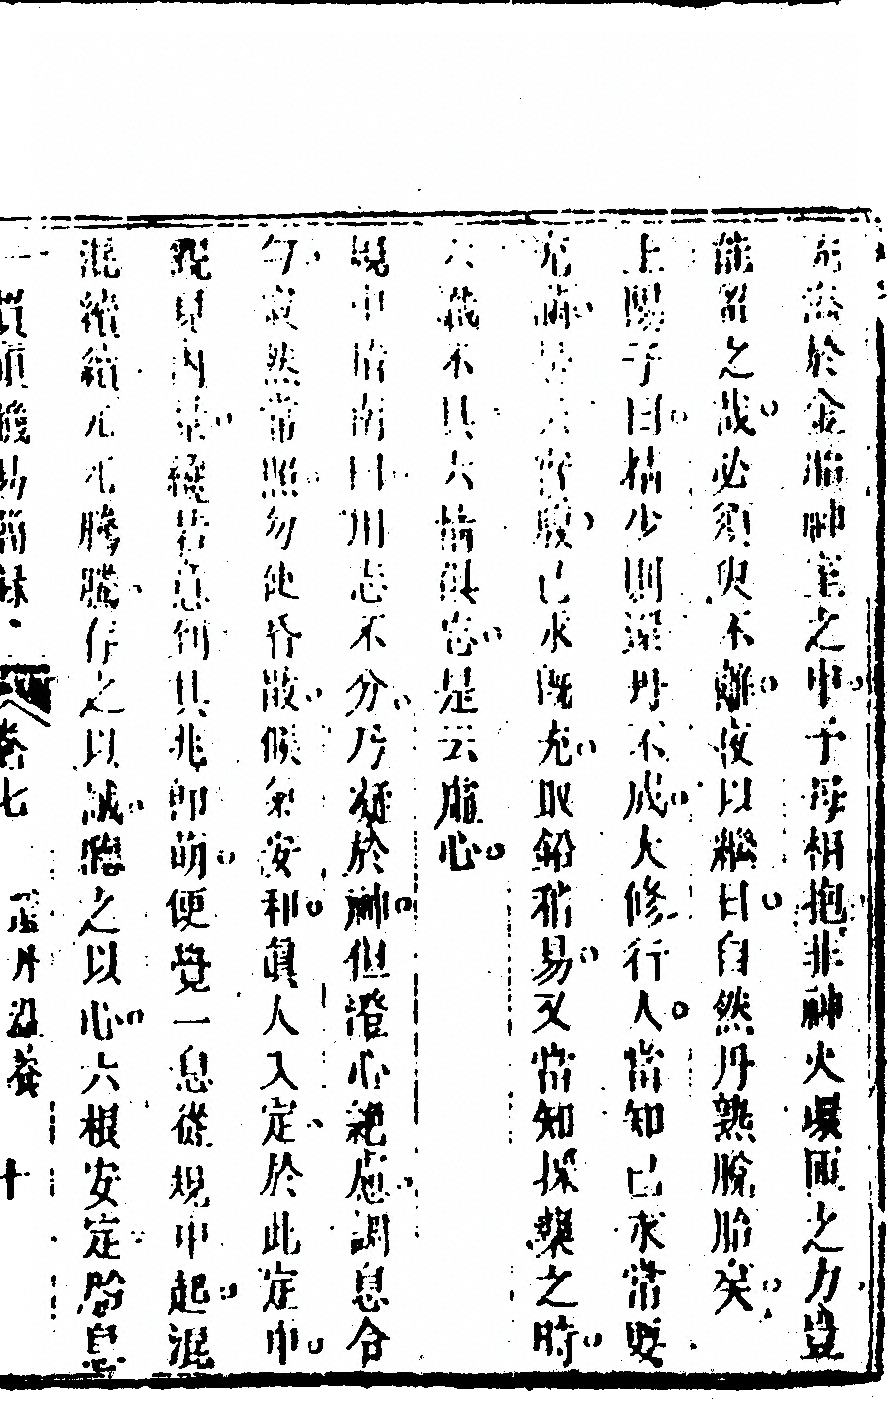 於金胎神室之中子母相抱非神火環匝之力豈
能留之哉必須臾不離夜以繼日自然丹熟脫胎矣
上陽子曰構少則還丹不成大修行人當知己求當要
充滿是云實腹己求既充取鉛稍易又當知採藥之時
六識不具六情俱忘是云虛心
規中指南曰用志不分乃凝於神但澄心絕慮調息令
勻寂然常照勿使昏散候氣安和眞人入定於此定中
觀見內景纔若意到其兆即萌便覺一息從規中起混
混續續兀兀騰騰存之以誠聽之以心六根安定胎息
一貫眞機易簡錄 卷七 還丹溫養 十